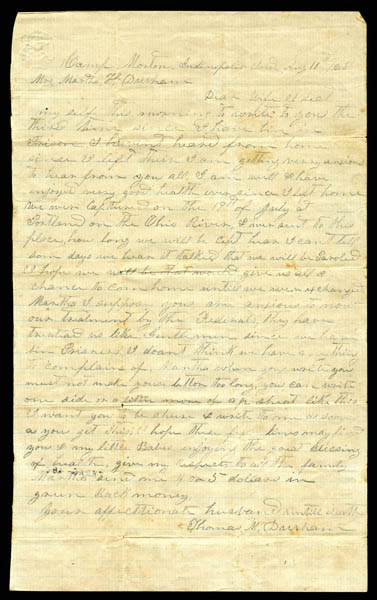 Camp Morton, Indianapolis Ind Aug 11th
Mrs Martha
Dear Wife I seat
my self this morning to write to you the
third time since I have bin in
Prison I have not heard from home
since I left their I am getting very anxious
to hear from you all, I am well & have
injoyed very good health ever since I left home
we were captured on the 19th of July at
on the Ohio River, & were sent to this
place, how long we will be kept hear I cant tell
some days we hear it talked that we will be Paroled
I hope we will be that would give us all a
chance to com home untill we were exchanged
Martha I suppose youre anxious to now
our treatment by the Federals, they have
treated us like Gentlemen since we have
bin Prisners I dont think we have any thing
to complain of, Martha when you write you
must not make your letter too long, you can write
one side on a sheet like this
I want you to be shure & write to me as soon
as you get this I hope these few lines may find
you & my little Babes injoying the good blessing
of health, give my respects to all the family
Martha send me 4 or 5 dollars in
green back money
your affectionate husband untill death
Thomas